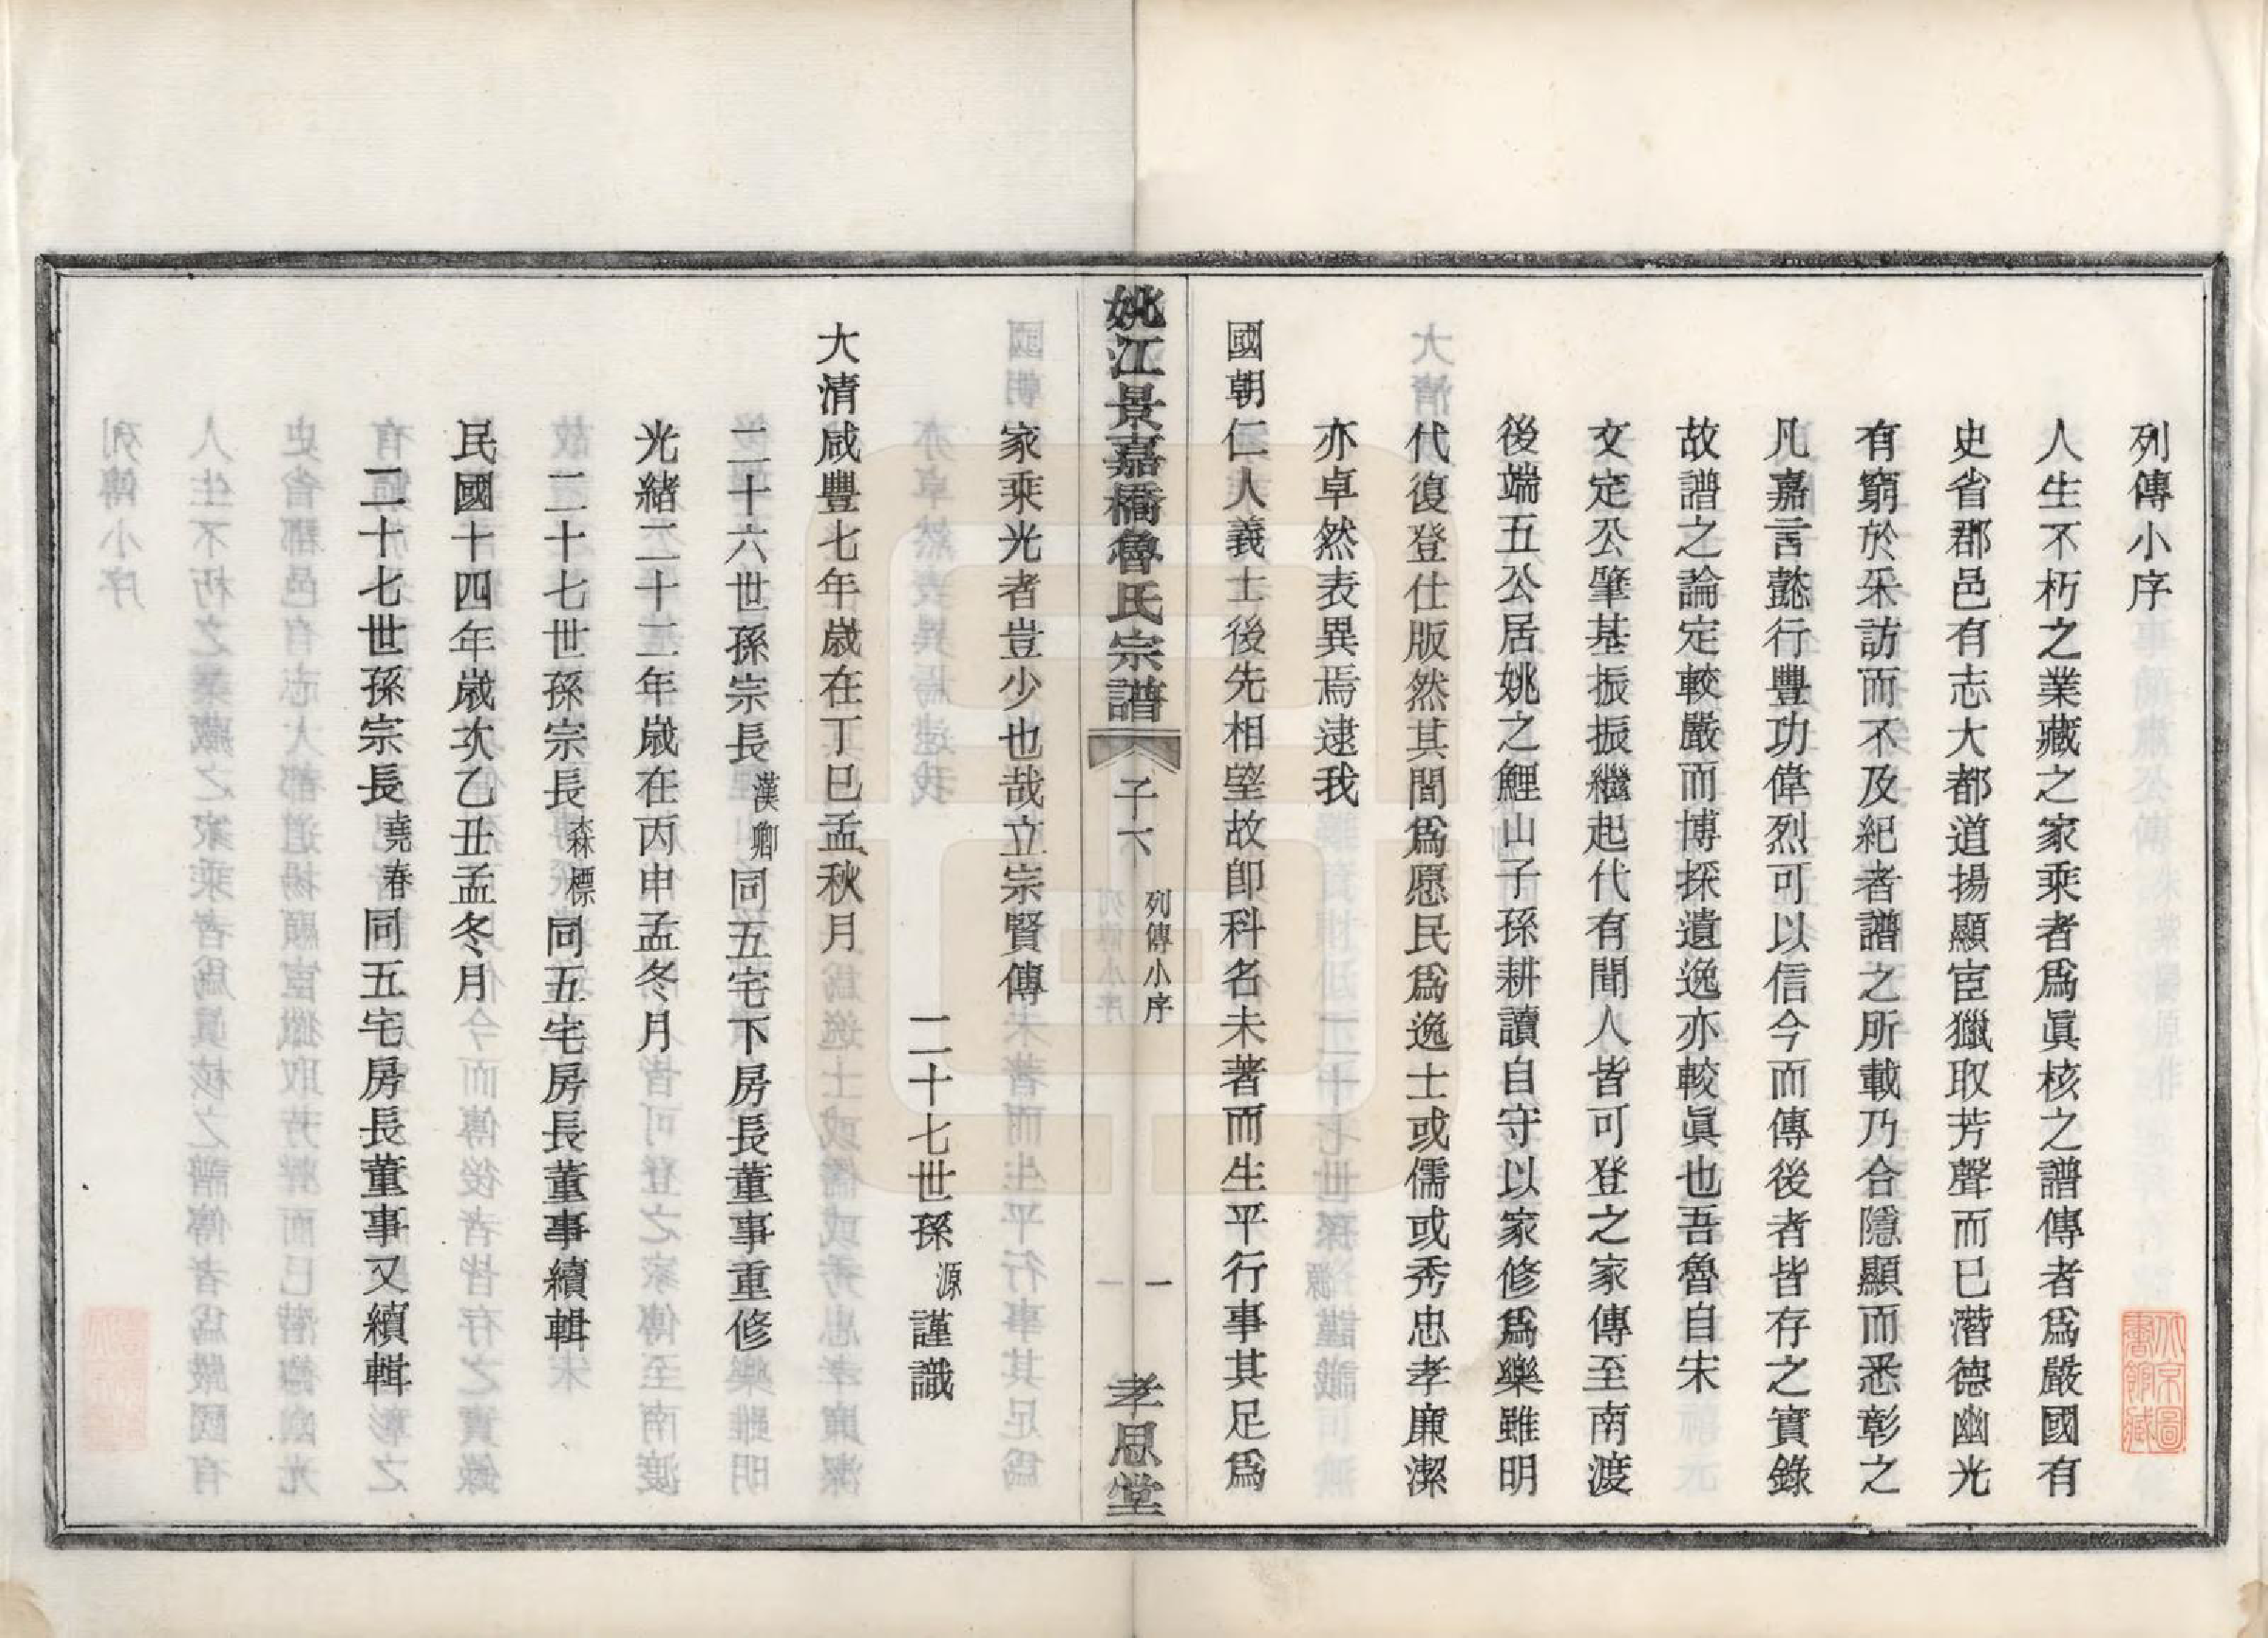 列傳小序
人生不朽之業藏之家乘者爲眞核之譜傳者爲嚴國有
史省郡邑有志大都道揚顯宦獵取芳聲而已潛德幽光
有窮於采訪而不及紀者譜之所載乃合隱顯而悉彰之
凡嘉言懿行豐功偉烈可以信今而傳後者皆存之實錄
故譜之論定較嚴而博採遺逸亦較眞也吾魯自宋
文定公肇基振振繼起代有聞人皆可登之家傳至南渡
後端五公居姚之鯉山子孫耕讀自守以家修爲樂雖明
代復登仕版然其間爲愿民爲逸士或儒或秀忠孝廉潔
亦卓然表異焉逮我
國朝仁人義士後先相望故即科名未著而生平行事其足爲
姚江景嘉橋魯氏宗譜
子下
列傳小序
一
孝思堂
家乘光者豈少也哉立宗賢傳
二十七世孫源謹識
大清咸豐七年歲在丁巳孟秋月
二十六世孫宗長漢卿同五宅下房長董事重修
光緒二十二年歲在丙申孟冬月
二十七世孫宗長森標同五宅房長董事續輯
民國十四年歲次乙丑孟冬月
二十七世孫宗長堯春同五宅房長董事又續輯